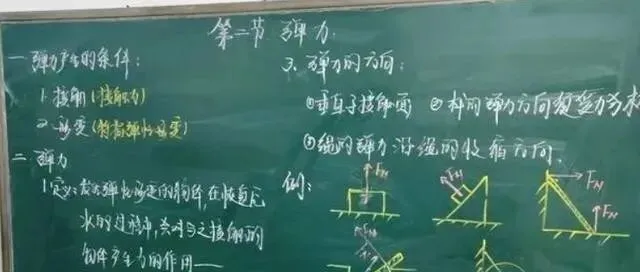 第二节 弹力
一 弹力产生的条件:
1. 接触(接触力)
2. 形变(指着弹性形变)
二 弹力
1 定义:发生弹性形变的物体,在恢复原
状的过程中,会对与之接触的
物体产生力的作用——
3. 弹力的方向:
①垂直于接触面 ②杆的弹力方向
③绳的弹力沿绳的收缩方向.
例:
FN
FN
FN
FN
FN